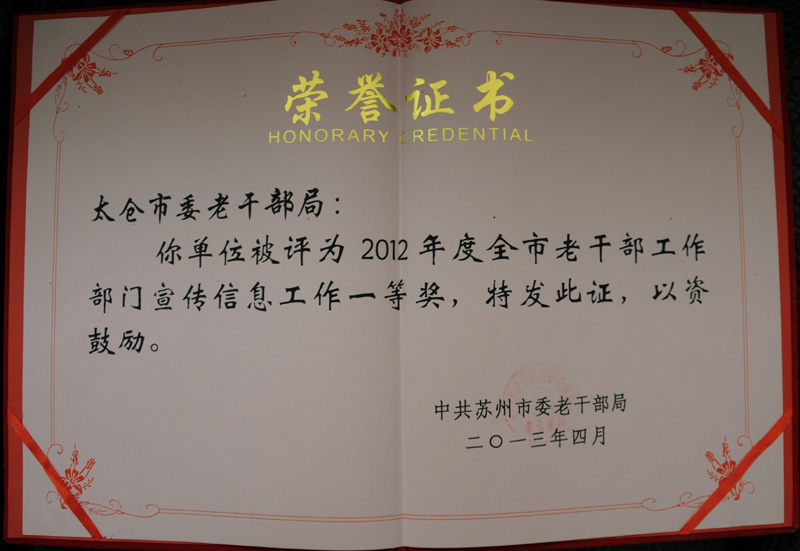 荣誉证书
HONORARY CREDENTIAL
太仓市委老干部局：
你单位被评为 2012 年度全市老干部工作
部门宣传信息工作一等奖，特发此证，以资
鼓励。
中共苏州市委老干部局
二〇一三年四月